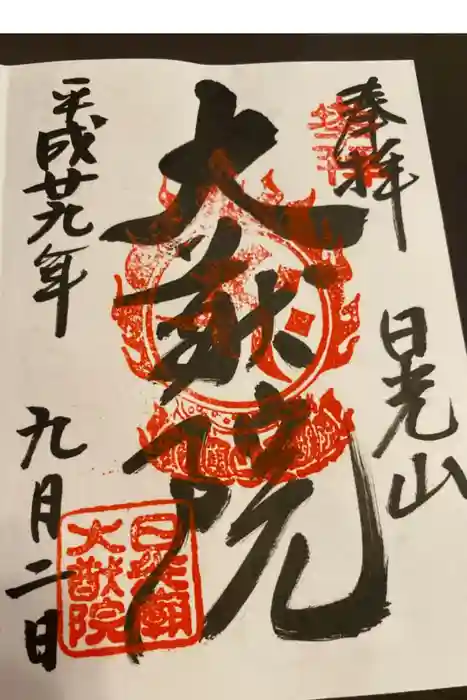 奉拝
日光山
大猷院
平成廿九年
九月二日
大猷院